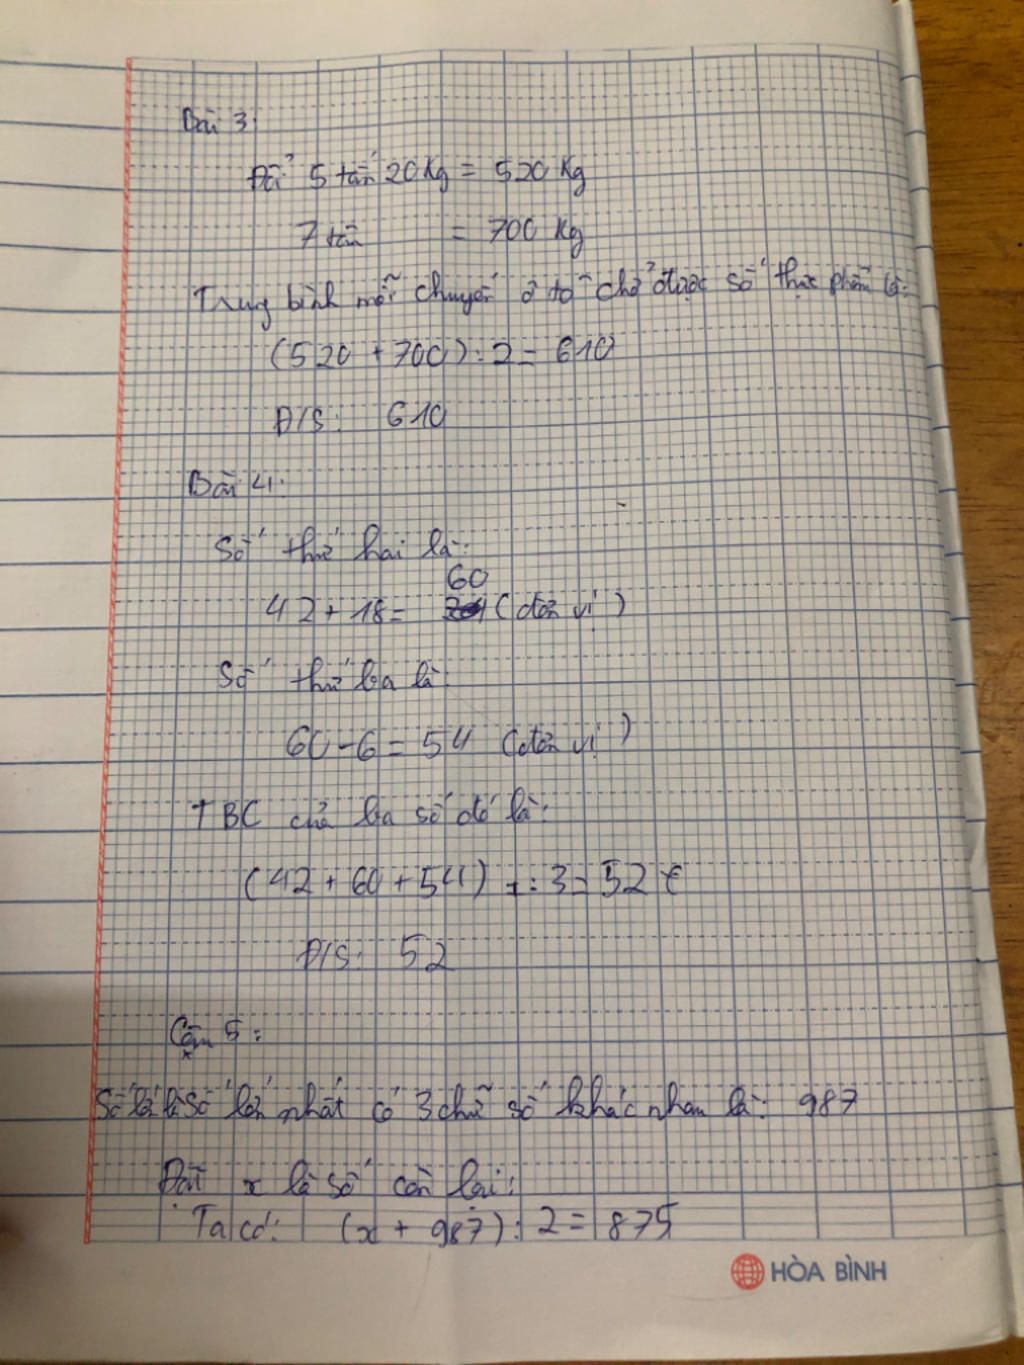 Bài 3:
Đổi 5 tấn 20 Kg = 520 Kg
7 tấn = 700 Kg
Trung bình mỗi chuyến ô tô chở được số thực phẩm là:
(520 + 700) : 2 = 610
Đ/S: 610
Bài 4:
Số thứ hai là:
60
42 + 18 = (đơn vị)
Số thứ ba là:
60 - 6 = 54 (đơn vị)
TBC của ba số đó là:
(42 + 60 + 54) : 3 = 52
Đ/S: 52
5:
Số lớn nhất có 3 chữ số khác nhau là: 987
Đặt x là số còn lại:
Ta có: (x + 987) : 2 = 875
HÒA BÌNH